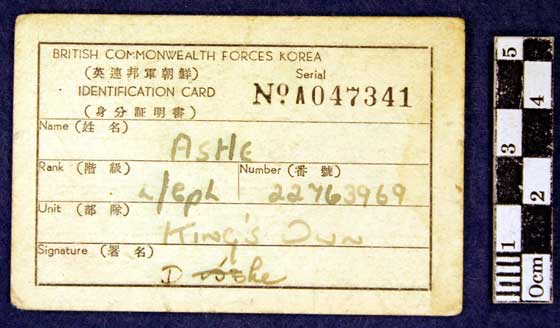 BRITISH COMMONWEALTH FORCES KOREA
(英連邦軍朝鮮) Serial
IDENTIFICATION CARD No A047341
(身分証明書)
Name (姓 名)
ASHE
Rank (階 級) Number (番 號)
L/cpl 22763969
Unit (部 隊)
KING'S OWN
Signature (署 名)
D Ashe
5
4
3
2
1
0cm